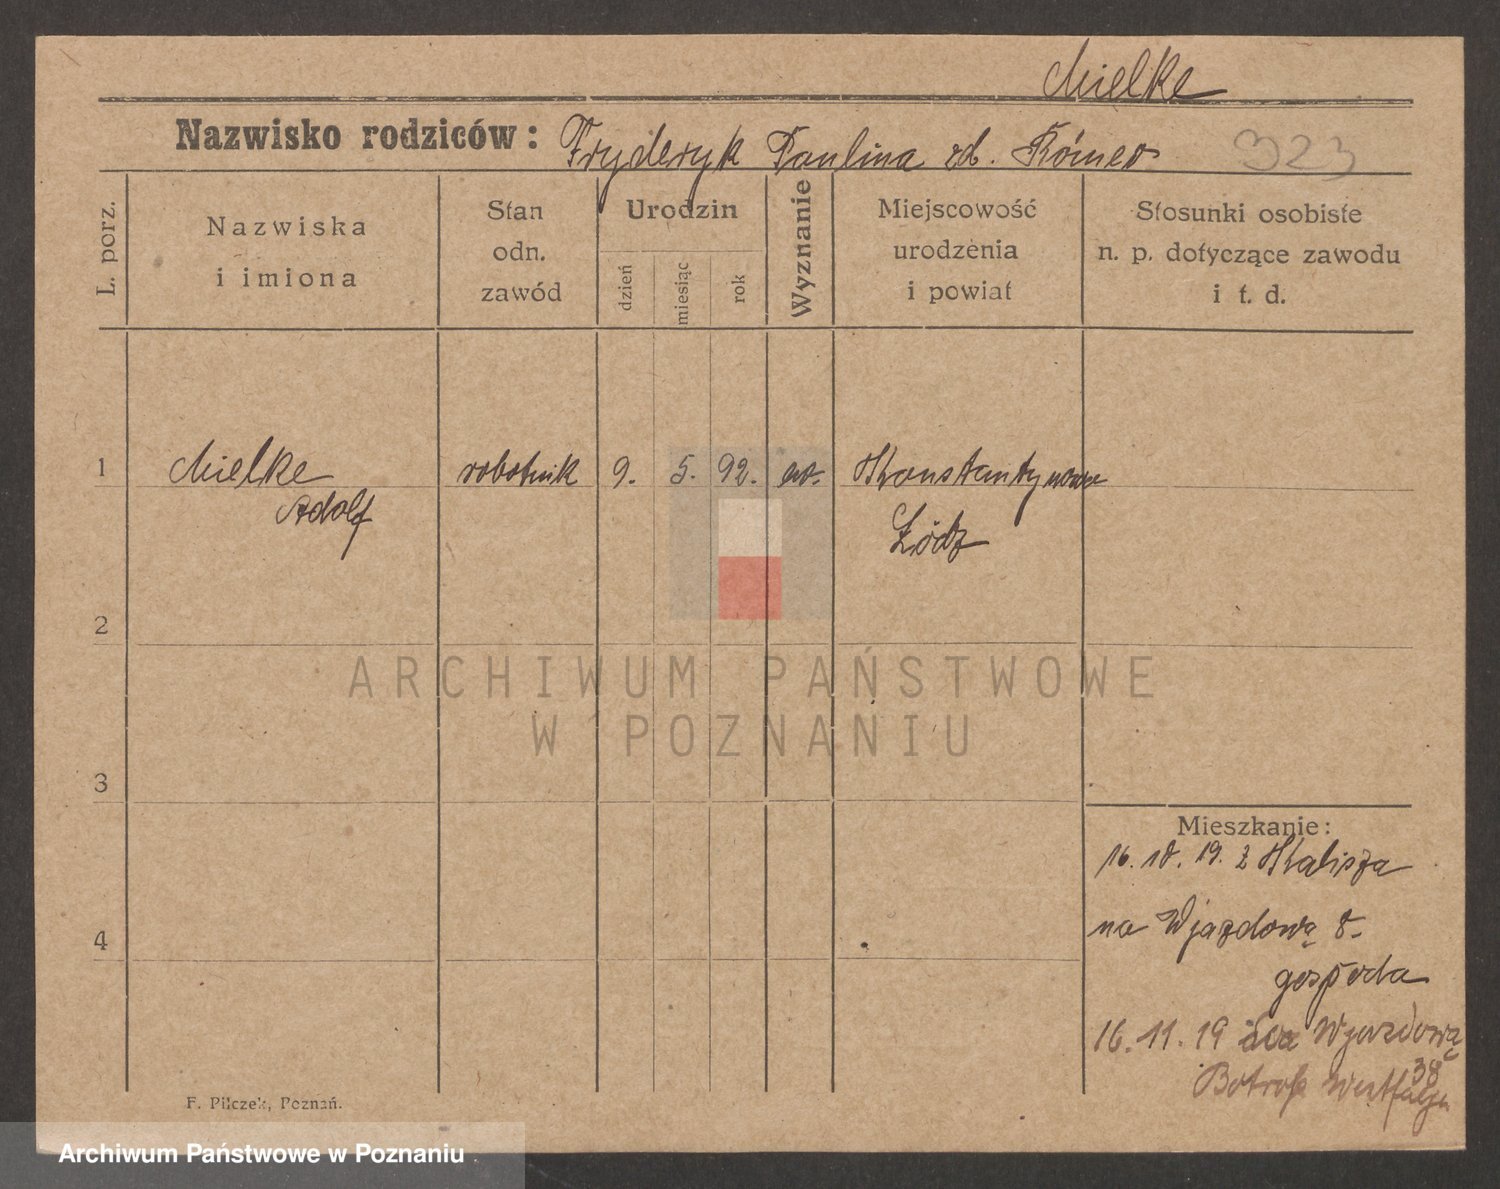 Mielke
Nazwisko rodziców: Fryderyk Paulina zd. Römer
323
L. porz.
Nazwiska
i imiona
Stan
odn.
zawód
Urodzin
dzień
miesiąc
rok
Wyznanie
Miejscowość
urodzenia
i powiat
Stosunki osobiste
n. p. dotyczące zawodu
i t. d.
1 Mielke robotnik 9. 5. 92. ew. Konstantynowo
Adolf Łódz
2
3
4
ARCHIWUM PAŃSTWOWE
W POZNANIU
Mieszkanie:
16. 10. 19. z Kalisza
na Wjazdową 8.
gospoda
16.11.19 Wjazdową
38
F. Pilczek, Poznań.
Archiwum Państwowe w Poznaniu